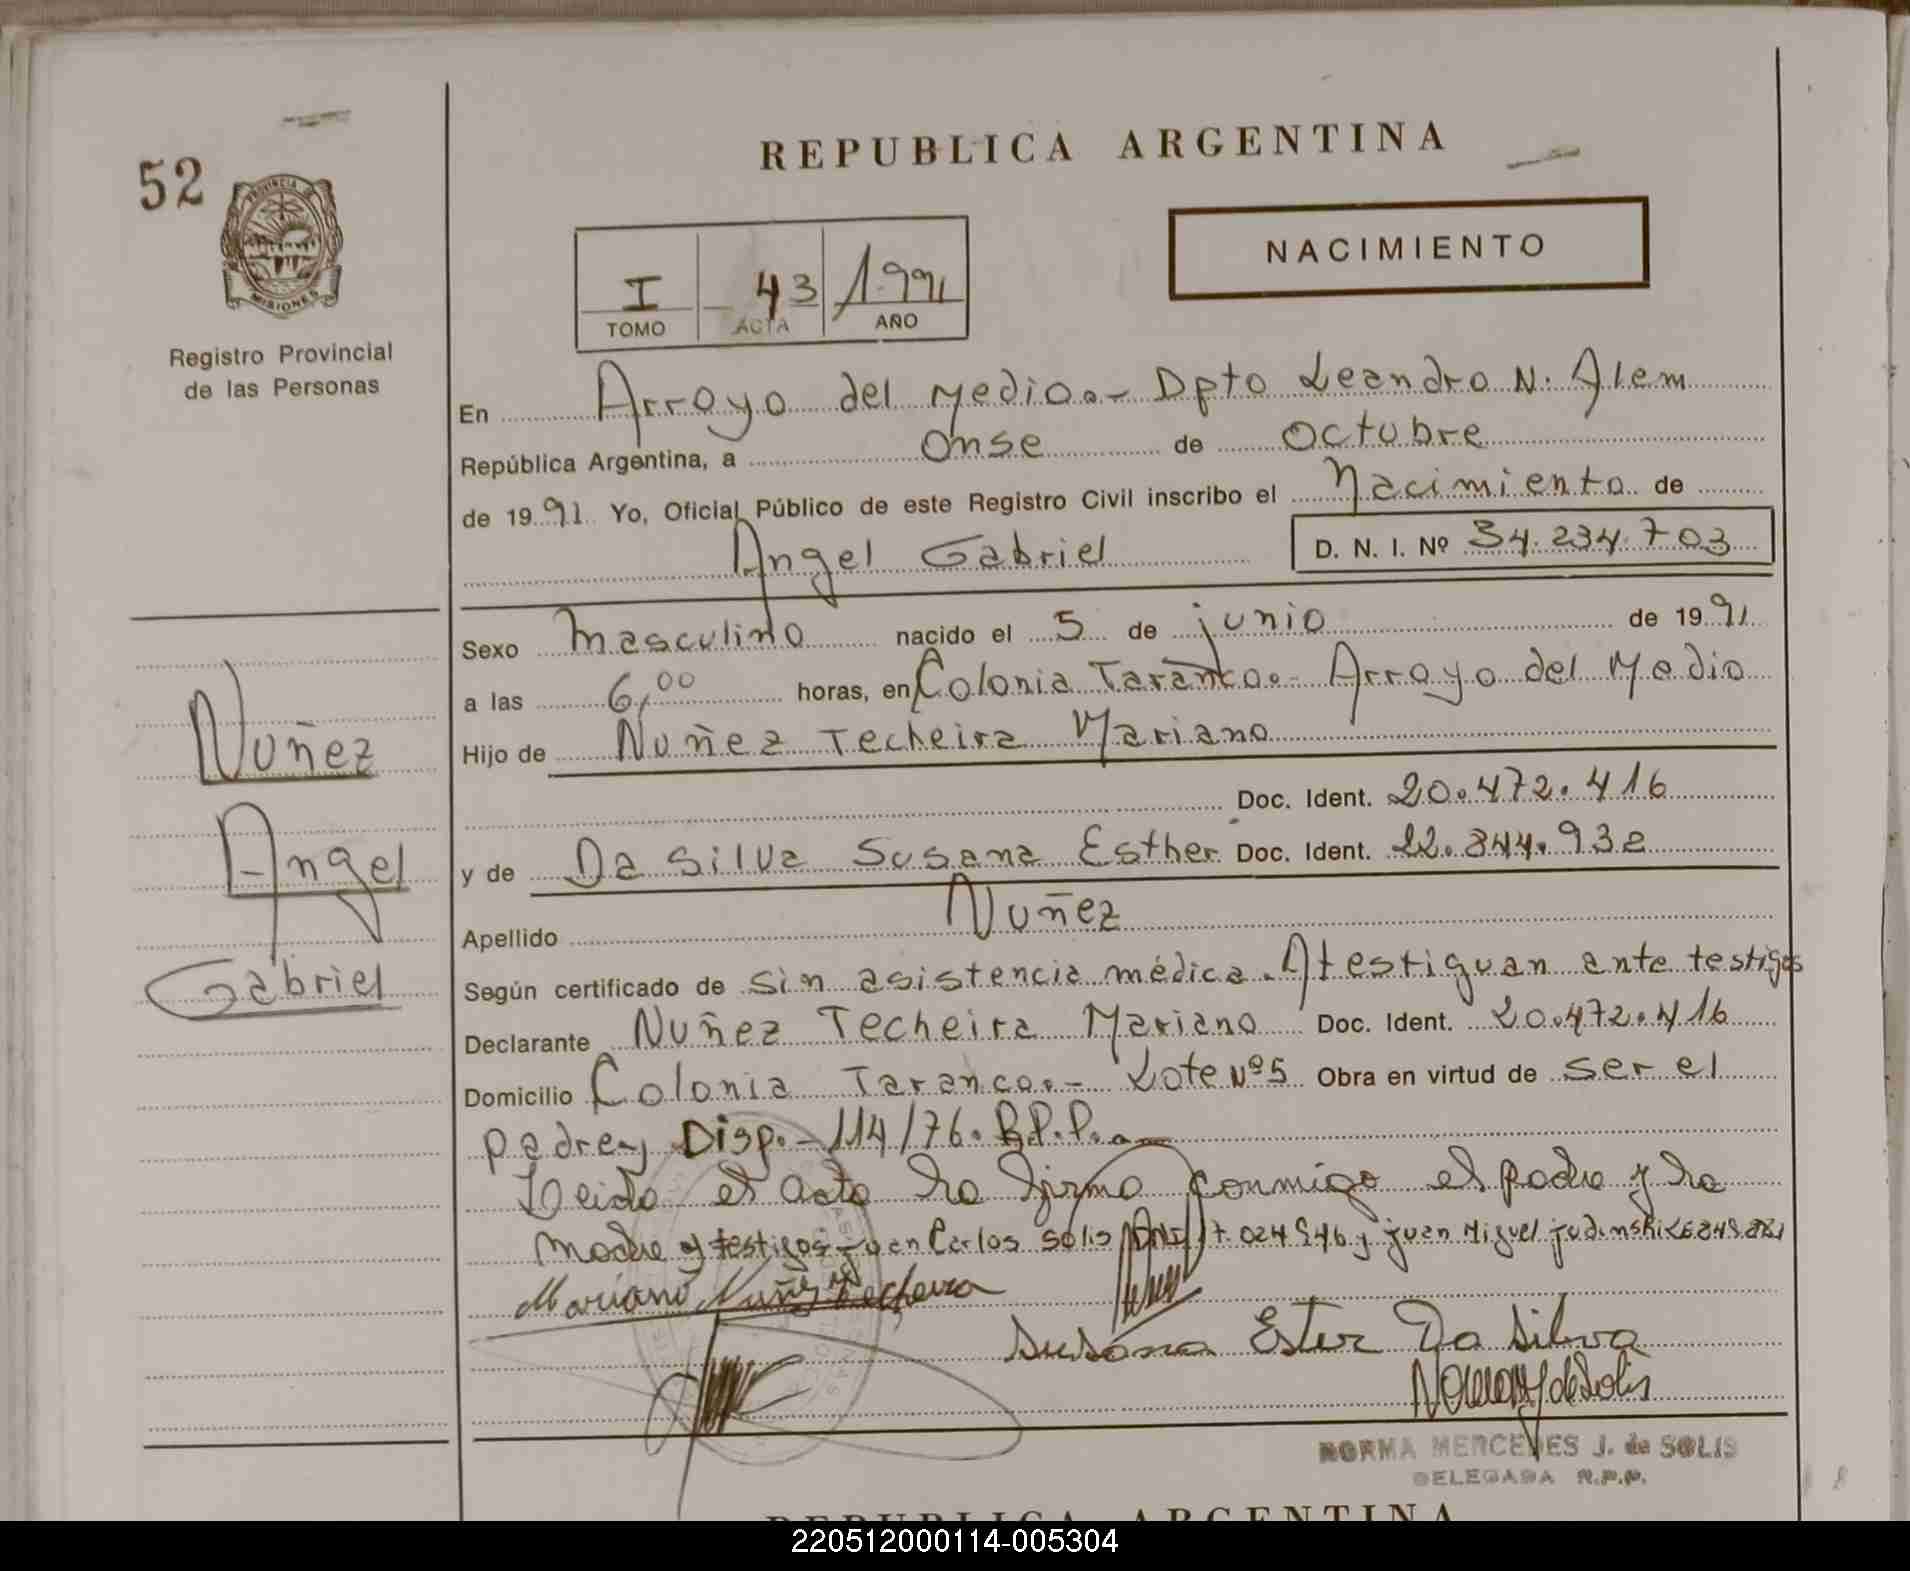 REPUBLICA ARGENTINA
52
PROVINCIA DE
MISIONES
NACIMIENTO
I 43 1991
TOMO ACTA AÑO
Registro Provincial
de las Personas
En Arroyo del Medio.- Dpto Leandro N. Alem
República Argentina, a onse de octubre
de 1991 Yo, Oficial Público de este Registro Civil inscribo el Nacimiento de
Angel Gabriel D. N. I. Nº 34.234.703
Sexo Masculino nacido el 5 de junio de 1991
a las 6,00 horas, en Colonia Taranco.- Arroyo del Medio
Hijo de Nuñez Techeira Mariano
Doc. Ident. 20.472.416
y de Da Silva Susana Esther Doc. Ident. 22.844.932
Apellido Nuñez
Según certificado de sin asistencia médica. Atestiguan ante testigos
Declarante Nuñez Techeira Mariano Doc. Ident. 20.472.416
Domicilio Colonia Taranco.- Lote Nº5 Obra en virtud de ser el
padre, Disp.- 114/76. R.P.P..-
Leida el acta la firma conmigo el padre y la
madre y testigos Juan Carlos Solis DNI y Juan Miguel
Nuñez
Angel
Gabriel
Mariano Nuñez Techeira
Susana Ester Da Silva
NORMA MERCEDES J. de SOLIS
DELEGADA R.P.P.
REPUBLICA ARGENTINA
220512000114-005304